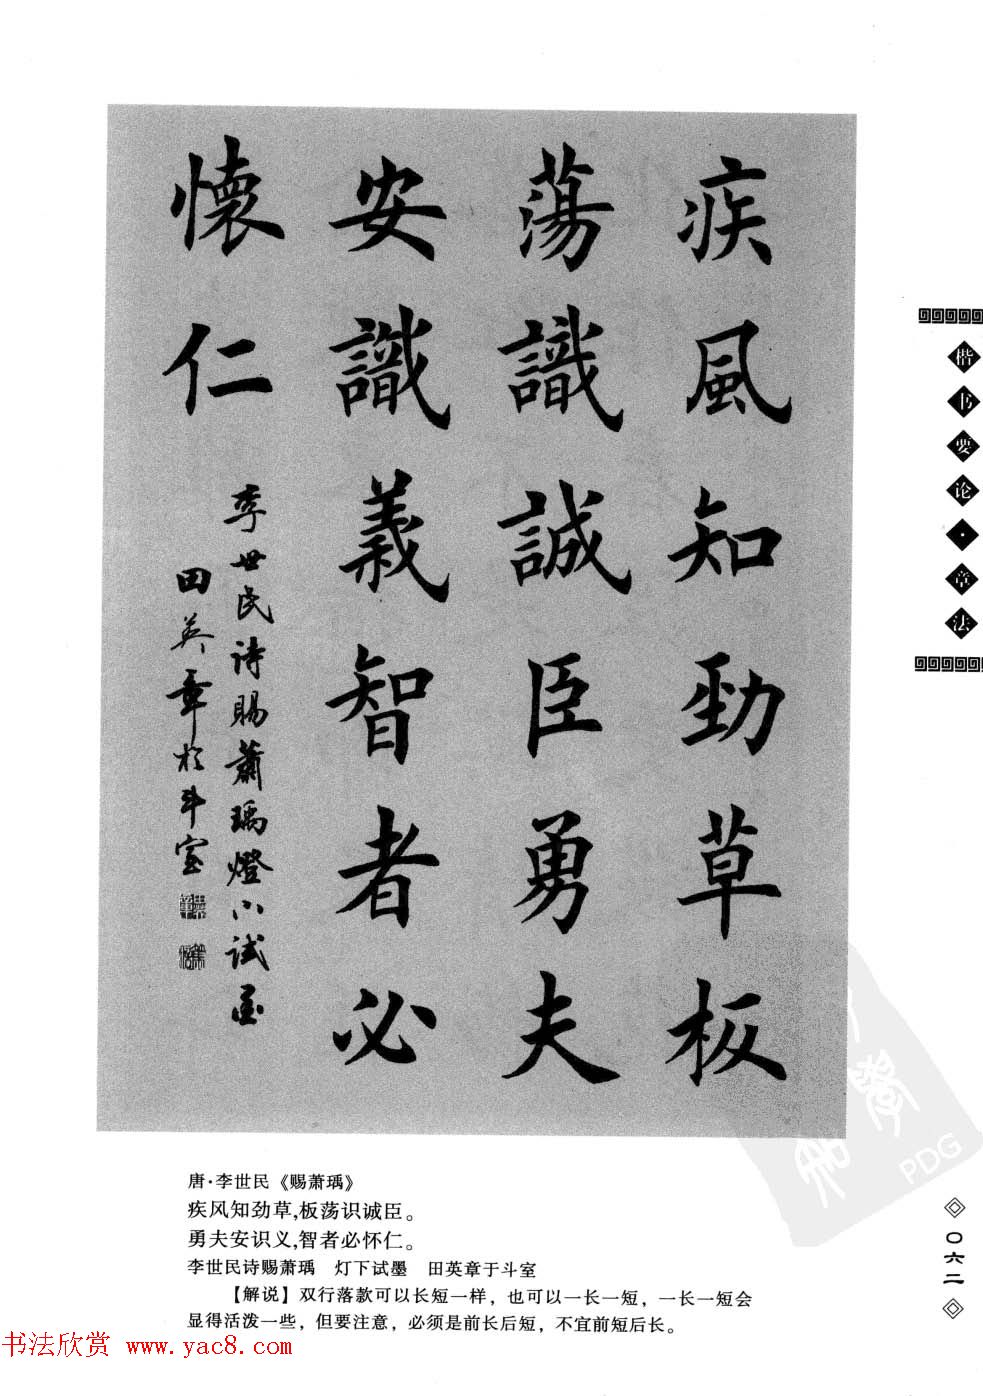 疾風知勁草板
蕩識誠臣勇夫
安識義智者必
懷仁
李世民诗賜蕭瑀燈下试墨
田英章於斗室
楷书要论·章法
唐·李世民《赐萧瑀》
疾风知劲草,板荡识诚臣。
勇夫安识义,智者必怀仁。
李世民诗赐萧瑀 灯下试墨 田英章于斗室
【解说】双行落款可以长短一样，也可以一长一短，一长一短会
显得活泼一些，但要注意，必须是前长后短，不宜前短后长。
〇六二
书法欣赏 www.yac8.com
PDG